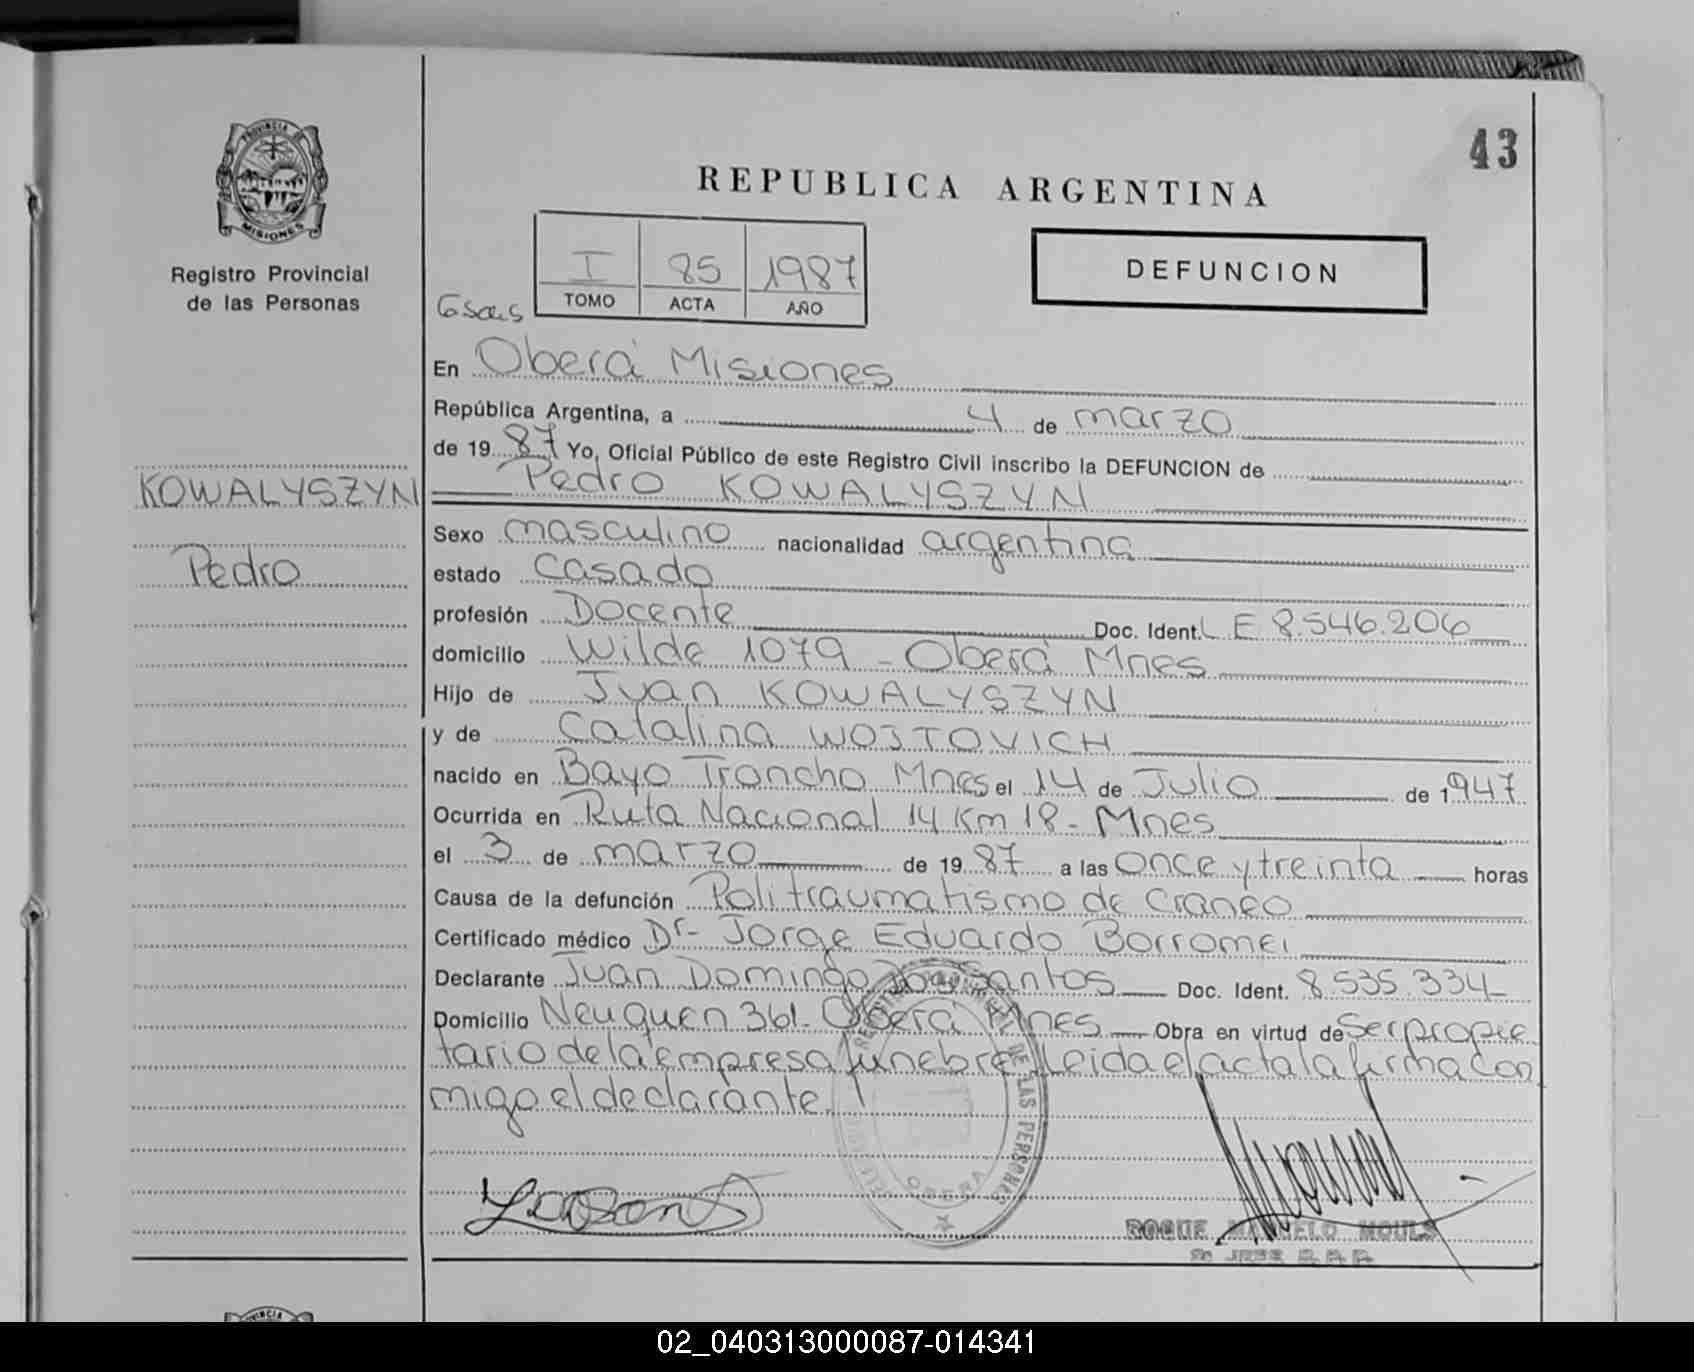 43
PROVINCIA DE
MISIONES
Registro Provincial
de las Personas
REPUBLICA ARGENTINA
I 85 1987
TOMO ACTA AÑO
DEFUNCION
En Oberá Misiones
República Argentina, a 4 de marzo
de 1987 Yo, Oficial Público de este Registro Civil inscribo la DEFUNCION de
KOWALYSZYN
Pedro
Pedro KOWALYSZYN
Sexo masculino nacionalidad argentina
estado Casado
profesión Docente Doc. Ident. L E 8.546.206
domicilio Wilde 1079 - Oberá Mnes
Hijo de Juan KOWALYSZYN
y de Catalina WOJTOVICH
nacido en Bayo Troncho Mnes el 14 de Julio de 1947
Ocurrida en Ruta Nacional 14 Km 18 - Mnes
el 3 de marzo de 1987 a las Once y treinta horas
Causa de la defunción Politraumatismo de Craneo
Certificado médico Dr. Jorge Eduardo Borromei
Declarante Juan Domingo Dos Santos Doc. Ident. 8.535.334
Domicilio Neuquen 361. Oberá Mnes Obra en virtud de Ser propie
tario de la empresa funebre. Leida el acta la firma con
migo el declarante.
DE LAS PERSONAS
OBERA
ROQUE MOULS
02_040313000087-014341